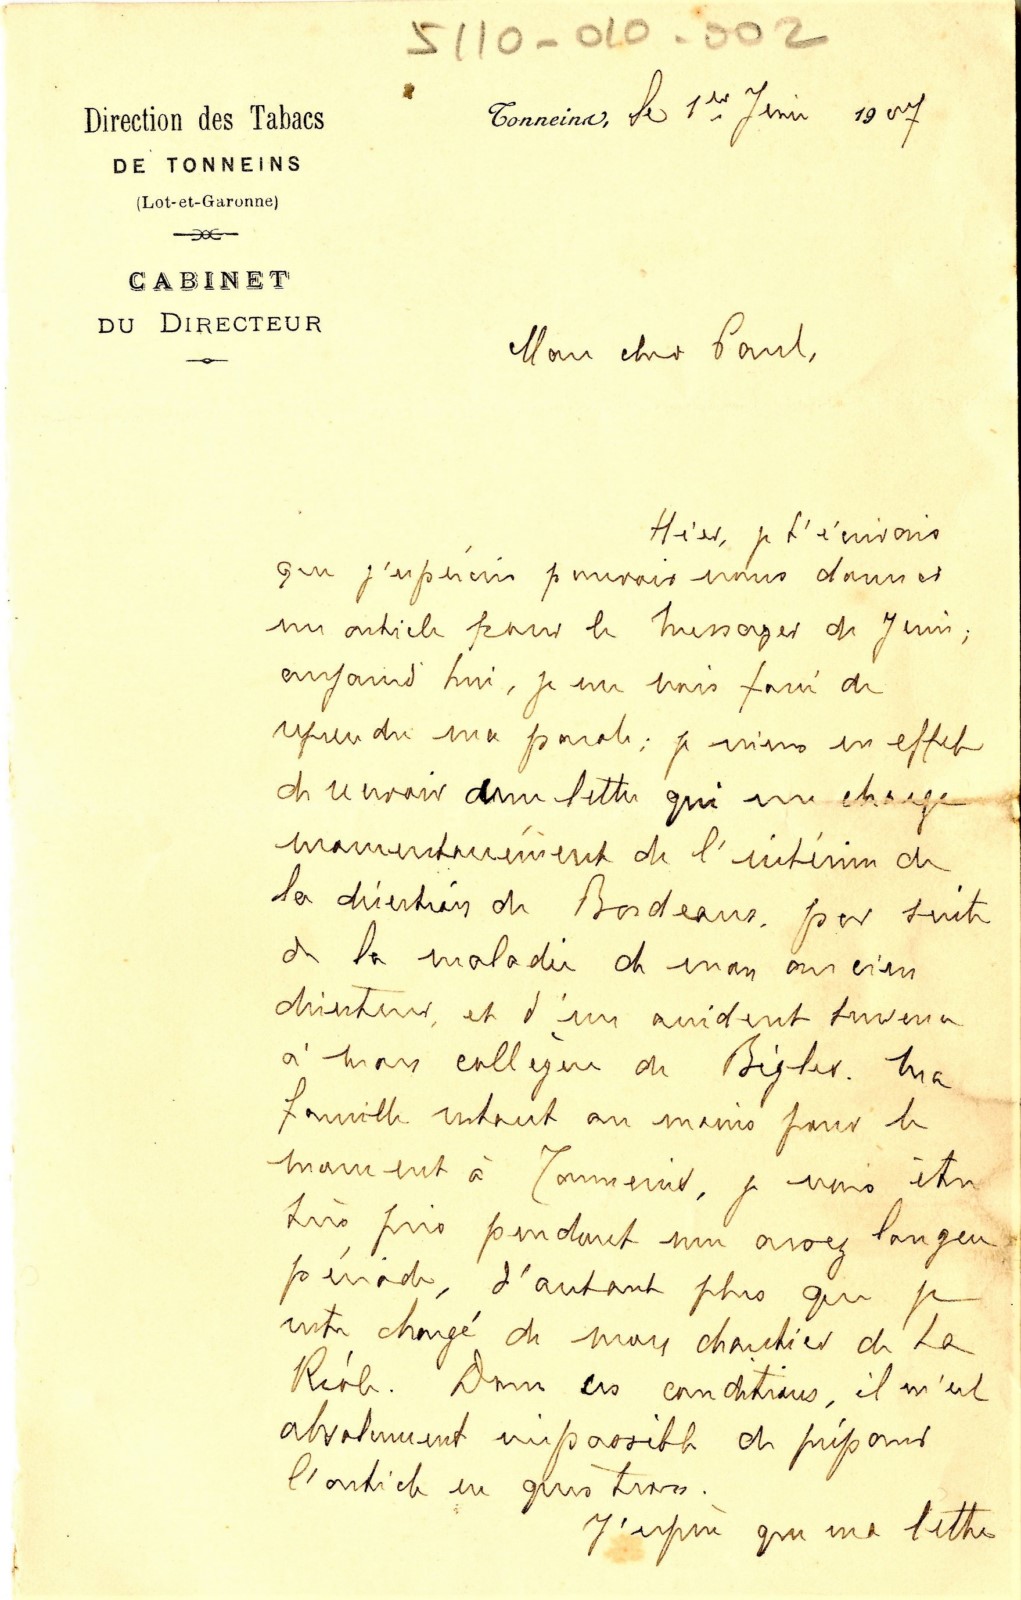 5110-010-002
Direction des Tabacs
DE TONNEINS
(Lot-et-Garonne)
CABINET
DU DIRECTEUR
Tonneins, le 1er Juin 1907
Mon cher Paul,
Hier, je t'écrivais
que j'espérais pouvoir vous donner
un article pour le Messager de Juin;
aujourd'hui, je me vois forcé de
reprendre ma parole; je viens en effet
de recevoir une lettre qui me charge
momentanément de l'intérim de
la direction de Bordeaux, par suite
de la maladie de mon ancien
directeur, et d'un accident survenu
à mon collègue de Bègles. Ma
famille restant au moins pour le
moment à Tonneins, je vais être
très pris pendant une assez longue
période, d'autant plus que je
reste chargé de mon chantier de La
Réole. Dans ces conditions, il m'est
absolument impossible de préparer
l'article en question.
J'espère que ma lettre